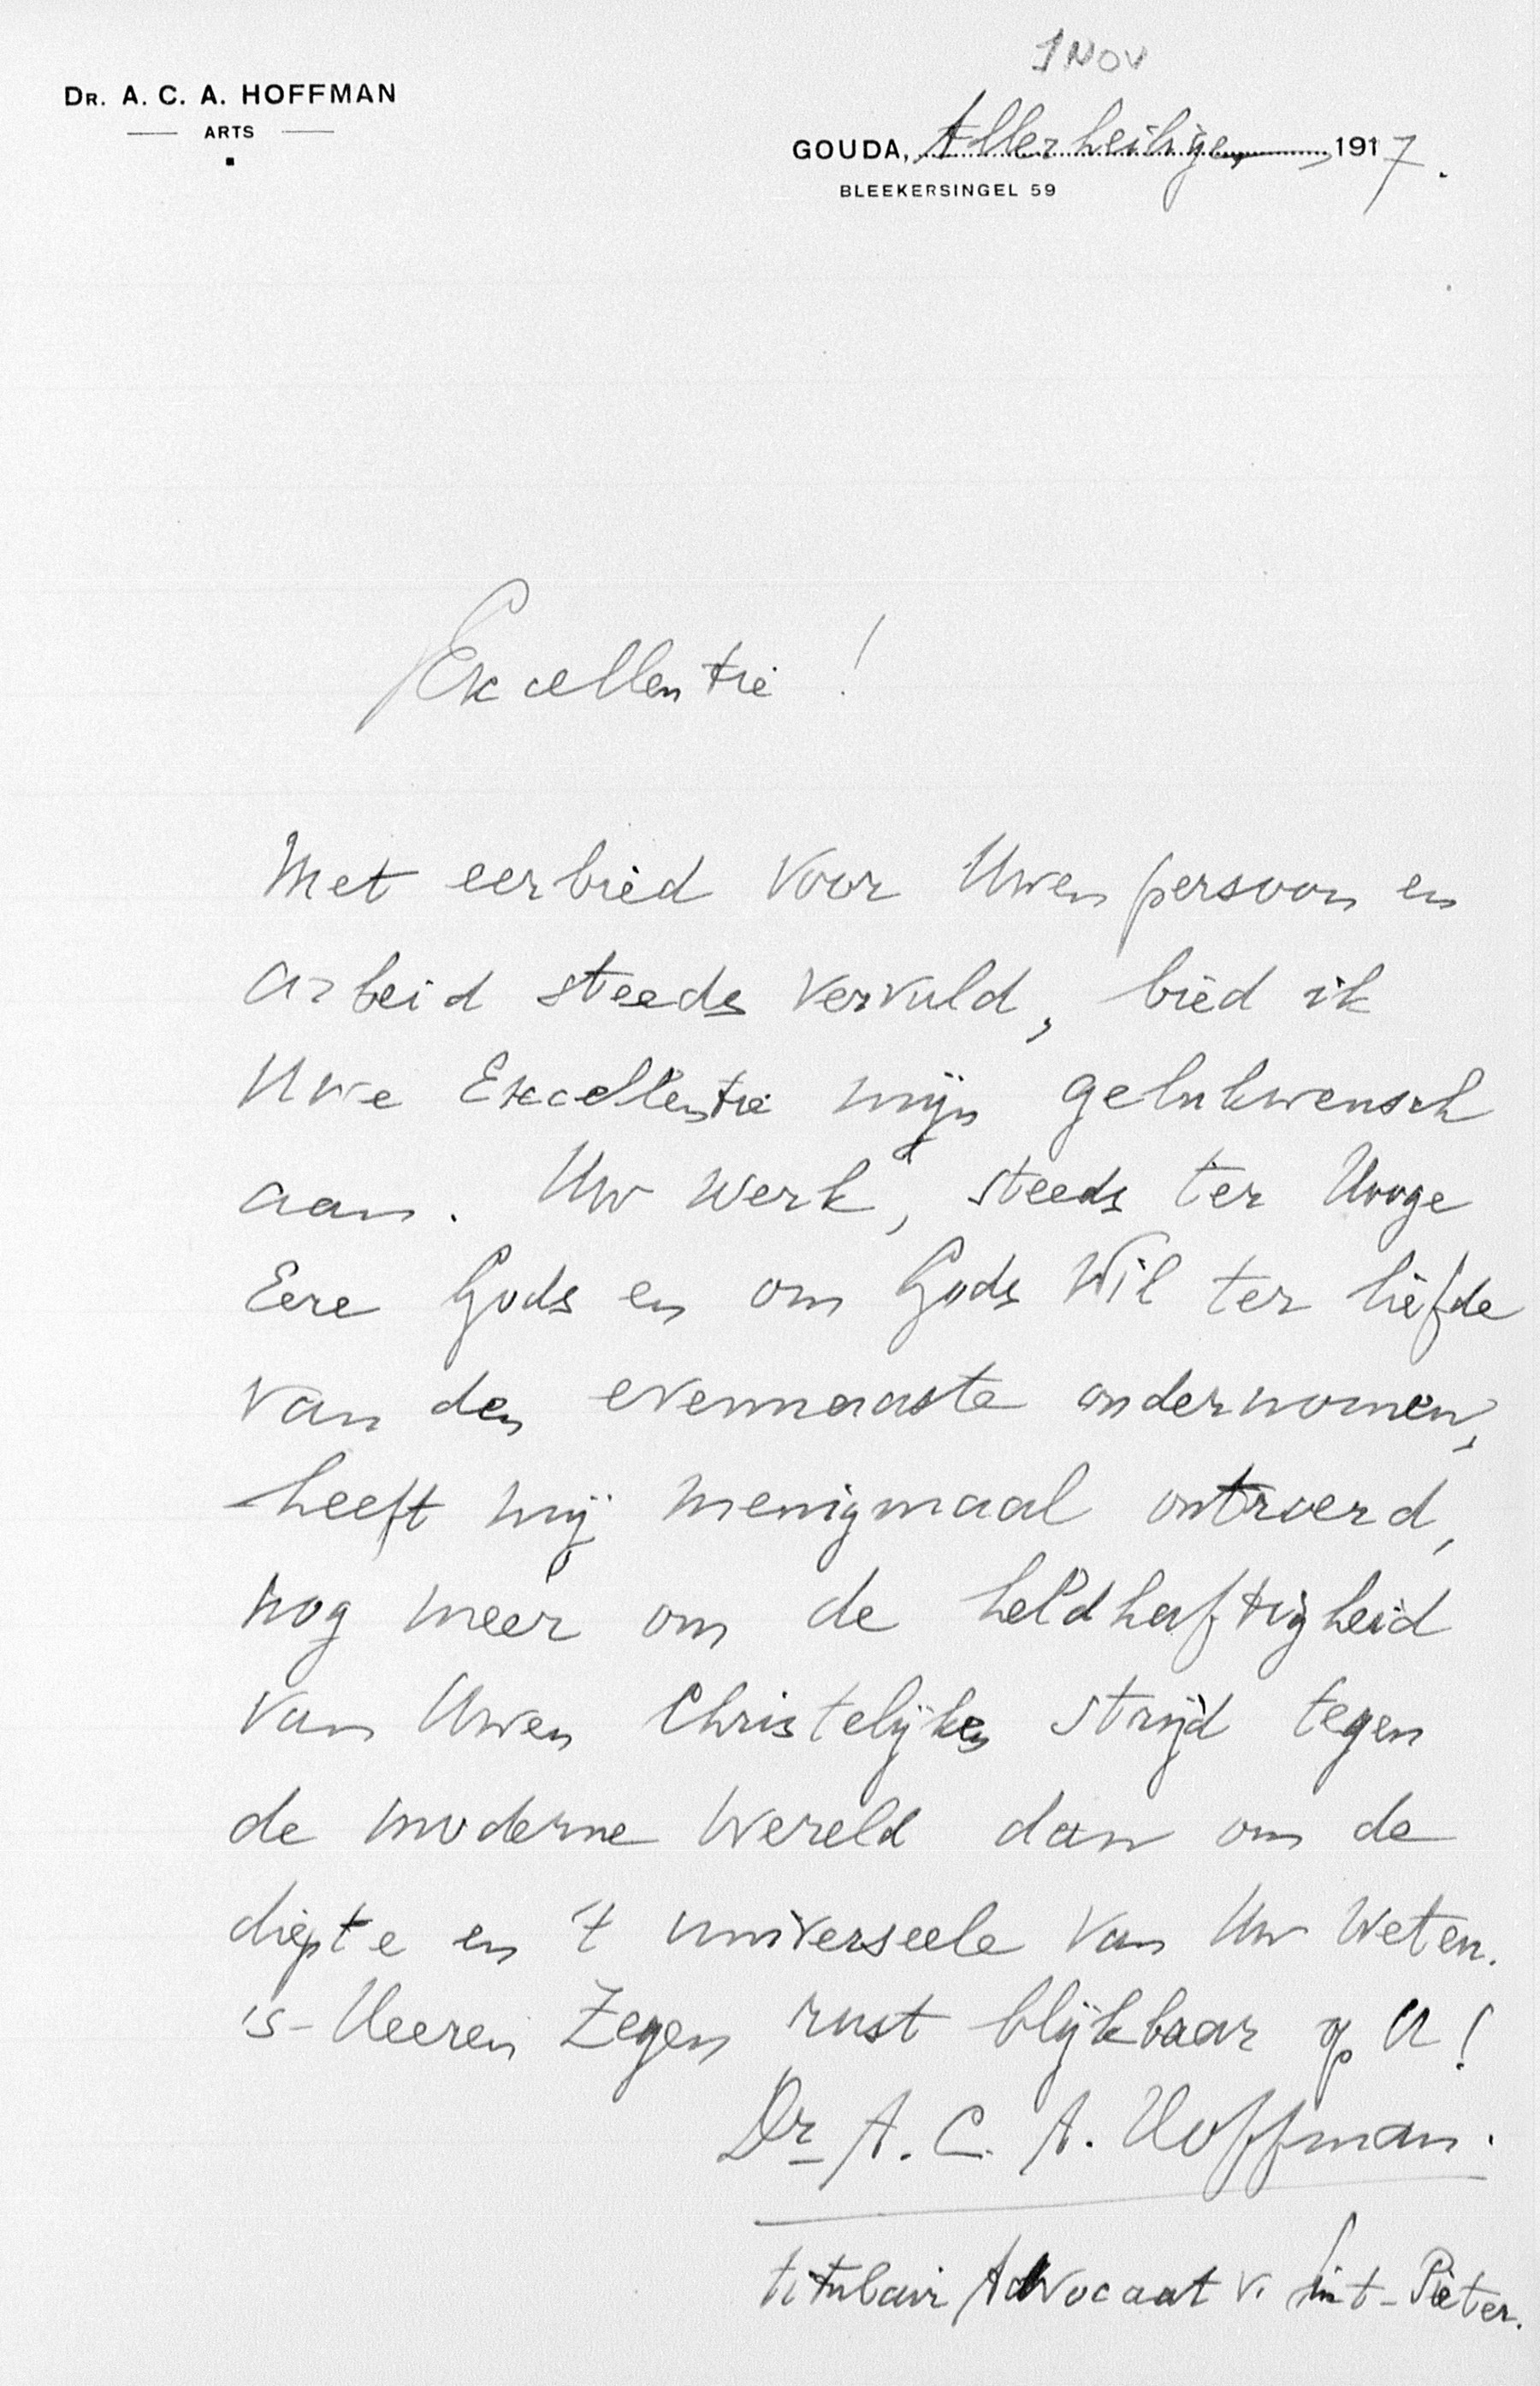 1 NOV
DR. A. C. A. HOFFMAN
ARTS
GOUDA, Allerheiligen 1917.
BLEEKERSINGEL 59
Excellentie !
Met eerbied voor Uwen persoon en
arbeid steeds vervuld, bied ik
Uwe Excellentie mijn gelukwensch
aan. Uw werk, steeds ter Hooge
Eere Gods en om Gods Wil ter liefde
van den evennaaste ondernomen,
heeft mij menigmaal ontroerd,
nog meer om de heldhaftigheid
van Uwen Christelijken strijd tegen
de moderne wereld dan om de
diepte en 't universeele van Uw Weten.
's-Heeren Zegen rust blijkbaar op U!
Dr A. C. A. Hoffman.
titulair Advocaat v. Sint-Pieter.